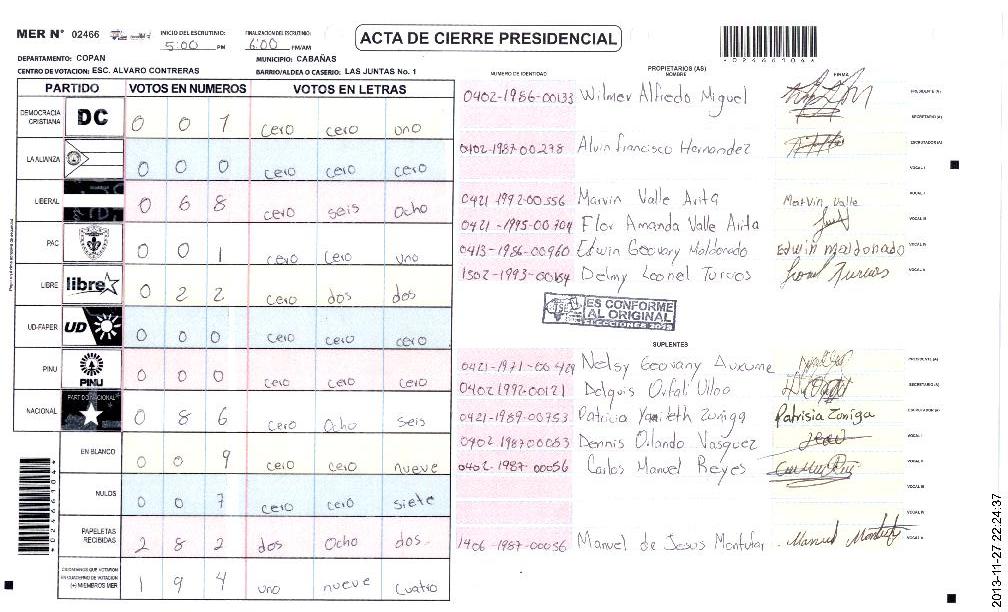 MER N° 02466
INICIO DEL ESCRUTINIO: 5:00 PM
FINALIZACION DEL ESCRUTINIO: 6:00 PM/AM
ACTA DE CIERRE PRESIDENCIAL
DEPARTAMENTO: COPAN
MUNICIPIO: CABAÑAS
CENTRO DE VOTACION: ESC. ALVARO CONTRERAS
BARRIO/ALDEA O CASERIO: LAS JUNTAS No. 1
PARTIDO VOTOS EN NUMEROS VOTOS EN LETRAS
DEMOCRACIA CRISTIANA DC 0 0 1 cero cero uno
LA ALIANZA 0 0 0 cero cero cero
LIBERAL 0 6 8 cero seis ocho
PAC 0 0 1 cero cero uno
LIBRE libre 0 2 2 cero dos dos
UD-FAPER UD 0 0 0 cero cero cero
PINU PINU 0 0 0 cero cero cero
NACIONAL PARTIDO NACIONAL 0 8 6 cero Ocho seis
EN BLANCO 0 0 9 cero cero nueve
NULOS 0 0 7 cero cero siete
PAPELETAS RECIBIDAS 2 8 2 dos Ocho dos
CIUDADANOS QUE VOTARON
EN CUADERNO DE VOTACION
(+) MIEMBROS MER 1 9 4 uno nueve cuatro
PROPIETARIOS (AS)
NUMERO DE IDENTIDAD NOMBRE FIRMA
0402-1986-00133 Wilmer Alfredo Miguel PRESIDENTE (A)
SECRETARIO (A)
0402-1987-00278 Alvin Francisco Hernandez ESCRUTADOR (A)
VOCAL I
0421 1992-00556 Marvin Valle Arita Marvin Valle
0421-1995-00704 Flor Amanda Valle Arita
0413-1986-00960 Edwin Geovany Maldonado Edwin maldonado
1502-1993-00184 Delmy Leonel Turcios
TSE
ES CONFORME
AL ORIGINAL
ELECCIONES
SUPLENTES
0421-1971-00429 Nelsy Geovany PRESIDENTE (A)
0402 1992-00121 SECRETARIO (A)
0421-1989-00753 Patricia Yanieth Zuniga Patrisia Zoniga ESCRUTADOR (A)
0402 1987 00053 Dennis Orlando Vasquez VOCAL I
0402-1987-00056 Carlos Manuel Reyes
1406-1987-00056 Manuel de Jesus Montufar
2013-11-27 22:24:37